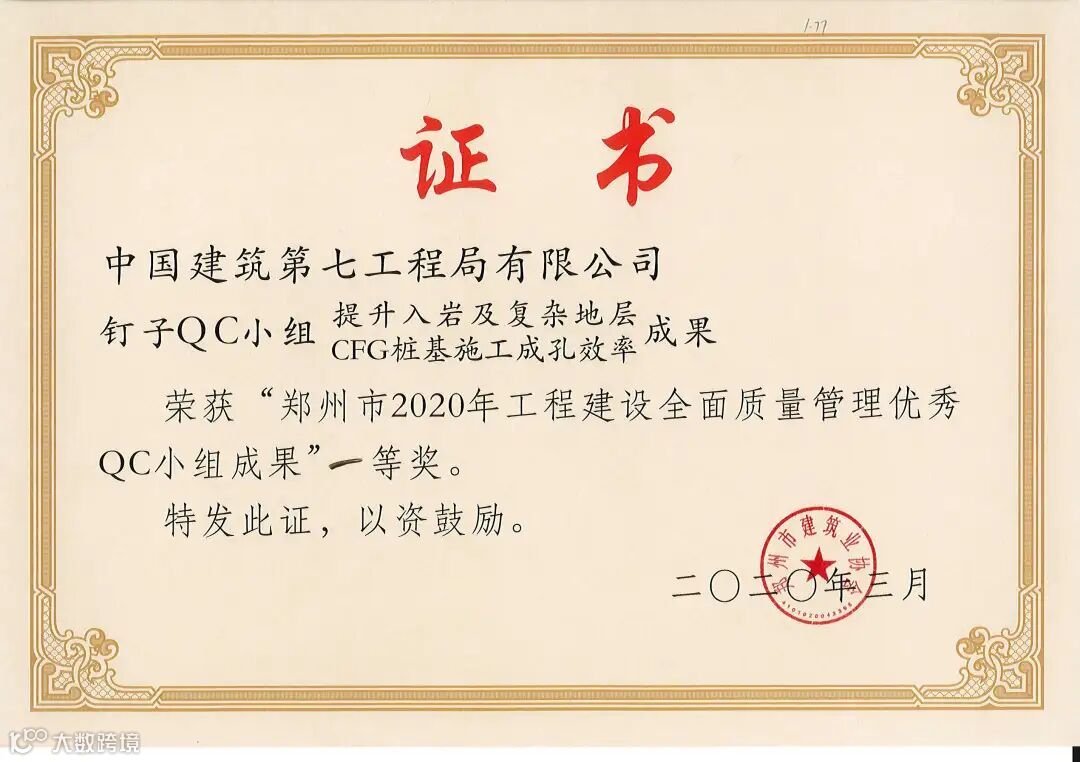 1-77
证书
中国建筑第七工程局有限公司
钉子QC小组 提升入岩及复杂地层 成果
CFG桩基施工成孔效率
荣获“郑州市2020年工程建设全面质量管理优秀
QC小组成果”一等奖。
特发此证，以资鼓励。
郑州市建筑业协会
二〇二〇年三月
大数跨境